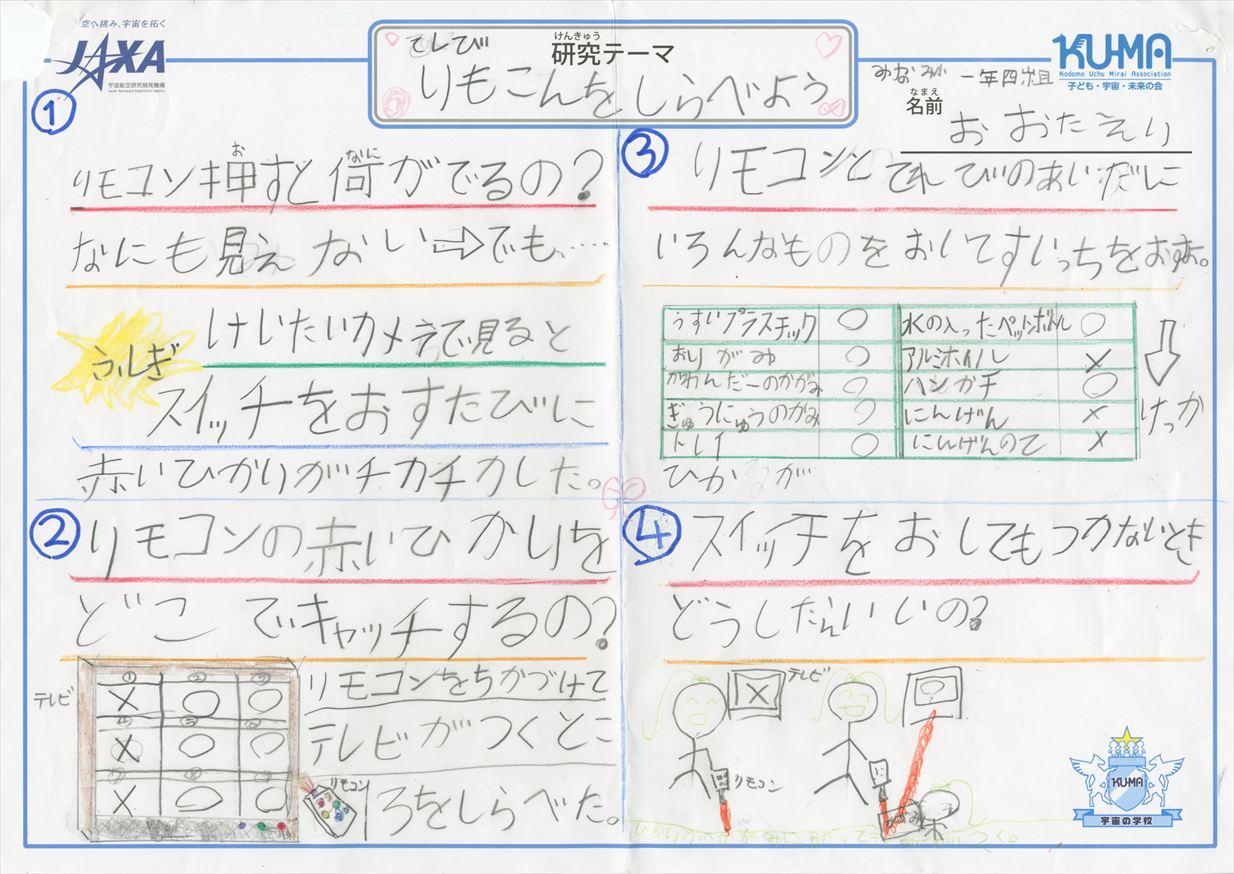 空へ挑み、宇宙を拓く
JAXA
宇宙航空研究開発機構
Japan Aerospace Exploration Agency
けんきゅう
研究テーマ
てレび
りもこんをしらべよう
KU-MA
Kodomo Uchu Mirai Association
子ども・宇宙・未来の会
一年四組
なまえ
名前
おおたえり
①
お
なに
リモコン押すと何がでるの?
なにも見えない⇨でも、……
ふしぎ
けいたいカメラで見ると
スイッチをおすたびに
赤いひかりがチカチカした。
②
リモコンの赤いひかりを
どこでキャッチするの?
テレビ
① ② ③
X ○ ○
④ ⑤ ⑥
X ○ ○
⑦ ⑧ ⑨
X ○ ○
リモコン
リモコンをちかづけて
テレビがつくとこ
ろをしらべた。
③
リモコンとてれびのあいだに
いろんなものをおいてすいっちをおす。
うすいプラスチック ○ 水の入ったペットボトル ○
おりがみ ○ アルミホイル ×
かわんだーのかがみ ○ ハンカチ ○
ぎゅうにゅうのかみ ○ にんげん ×
トレイ ○ にんげんのて ×
⇩
けっか
ひかるが
④
スイッチをおしてもつかないとき
どうしたらいいの?
テレビ
X
リモコン
○
かがみ
KU-MA
宇宙の学校